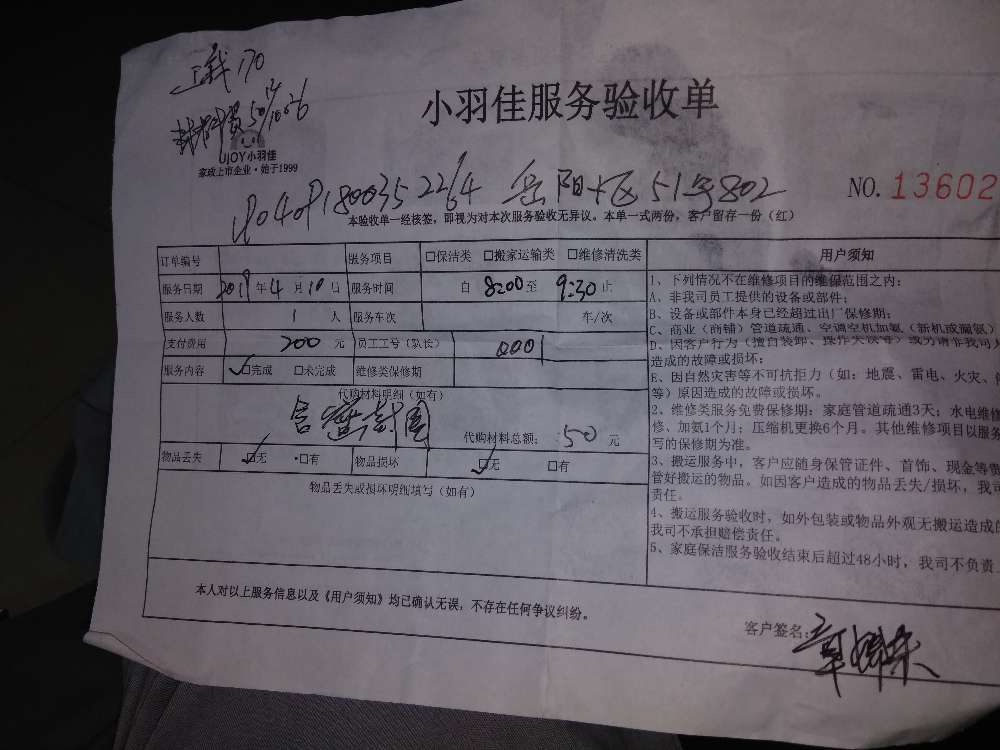 工载170
材料费50
UJOY小羽佳
家政上市企业·始于1999
小羽佳服务验收单
岳阳大厦51号802
NO. 13602
本验收单一经核签，即视为对本次服务验收无异议。本单一式两份，客户留存一份（红）
订单编号 服务项目 □保洁类 □搬家运输类 □维修清洗类
服务日期 2019年4月10日 服务时间 自 8:00 至 9:30 止
服务人数 1 人 服务车次 车/次
支付费用 200 元 员工工号（队长） 0001
服务内容 ☑完成 □未完成 维修类保修期
代购材料明细（如有）
代购材料总额： 50 元
物品丢失 ☑无 □有 物品损坏 ☑无 □有
物品丢失或损坏明细填写（如有）
用户须知
1、下列情况不在维修项目的维保范围之内：
A、非我司员工提供的设备或部件；
B、设备或部件本身已经超过出厂保修期；
C、商业（商铺）管道疏通、空调空机加氨（新机或漏氨）
D、因客户行为（擅自装卸、操作失误等）或另请非我司人
造成的故障或损坏；
E、因自然灾害等不可抗拒力（如：地震、雷电、火灾、
等）原因造成的故障或损坏。
2、维修类服务免费保修期：家庭管道疏通3天；水电维修
修、加氨1个月；压缩机更换6个月。其他维修项目以服务
写的保修期为准。
3、搬运服务中，客户应随身保管证件、首饰、现金等贵
管好搬运的物品。如因客户造成的物品丢失/损坏，我司
责任。
4、搬运服务验收时，如外包装或物品外观无搬运造成的
我司不承担赔偿责任。
5、家庭保洁服务验收结束后超过48小时，我司不负责
本人对以上服务信息以及《用户须知》均已确认无误，不存在任何争议纠纷。
客户签名：